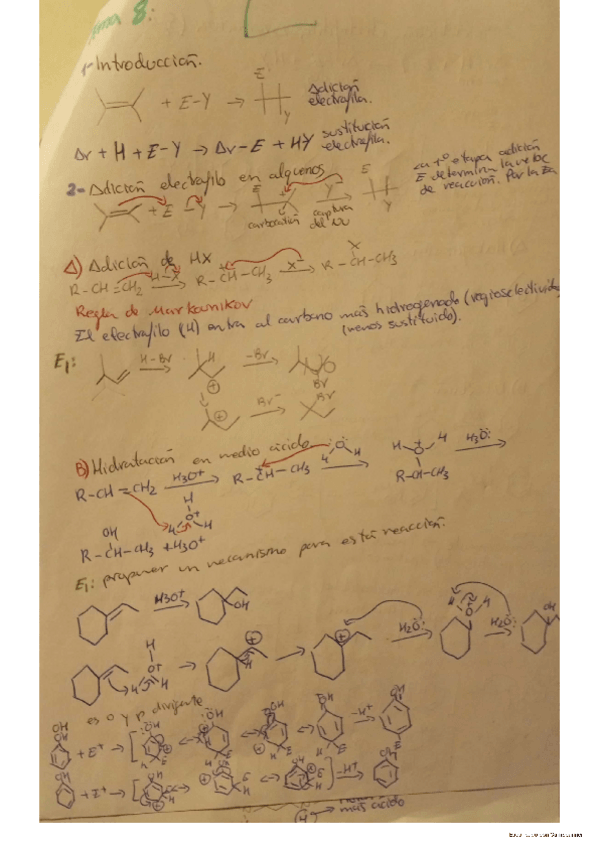 Tema 8:
1- Introducción.
+ E-Y → E Y Adición electrofila.
Ar + H + E-Y → Ar-E + HY sustitución electrofila.
2- Adición electrofilo en alquenos
+ E-Y → carbocatión captura del NU E Y
la 1º etapa adición E determina la veloc de reacción. Por la Ea
A) Adición de HX
R-CH=CH2 H-X → R-CH-CH3 X⁻ → R-CH-CH3 X
Regla de Markovnikov
El electrofilo (H) entra al carbono más hidrogenado (regioselectividad
(menos sustituido).
E1: H-Br → H ⊕ -Br → Br
⊕ Br⁻ → Br
B) Hidratación en medio ácido
R-CH=CH2 H3O+ → R-CH-CH3 → R-CH-CH3 H2O: →
R-CH-CH3 + H3O+ OH
E1: proponer un mecanismo para esta reacción.
H3O+ → OH
→ → H2O: → H2O: → OH
es o y p dirigente
+ E+ → -H+ →
+ E+ → -H+ →
más ácido